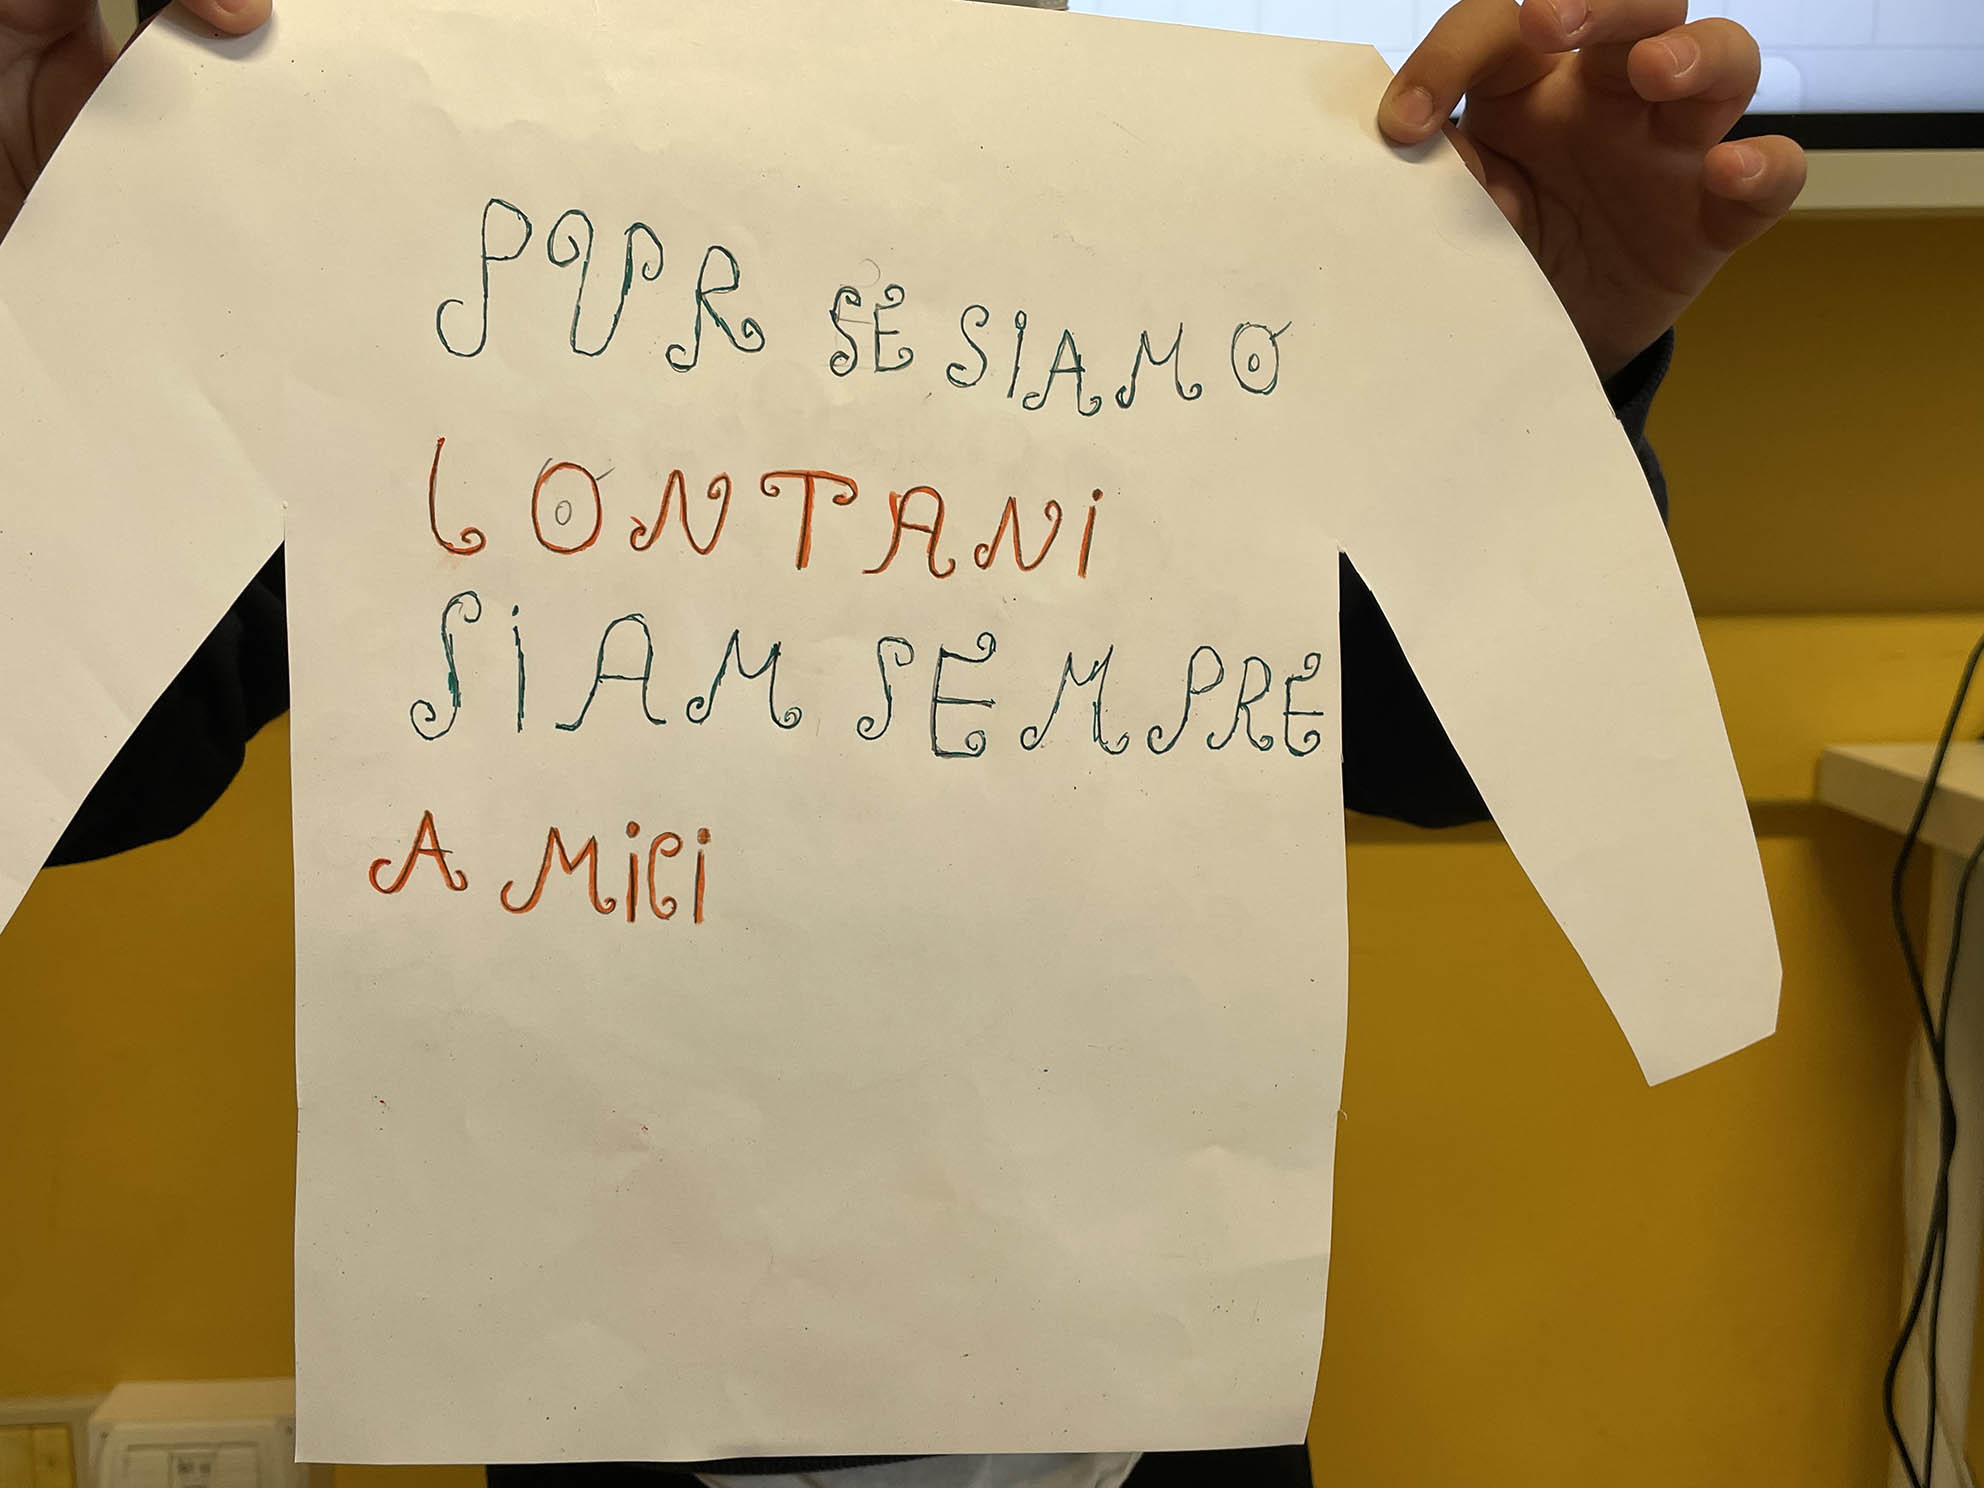 PUR SE SIAMO
LONTANI
SIAM SEMPRE
AMICI